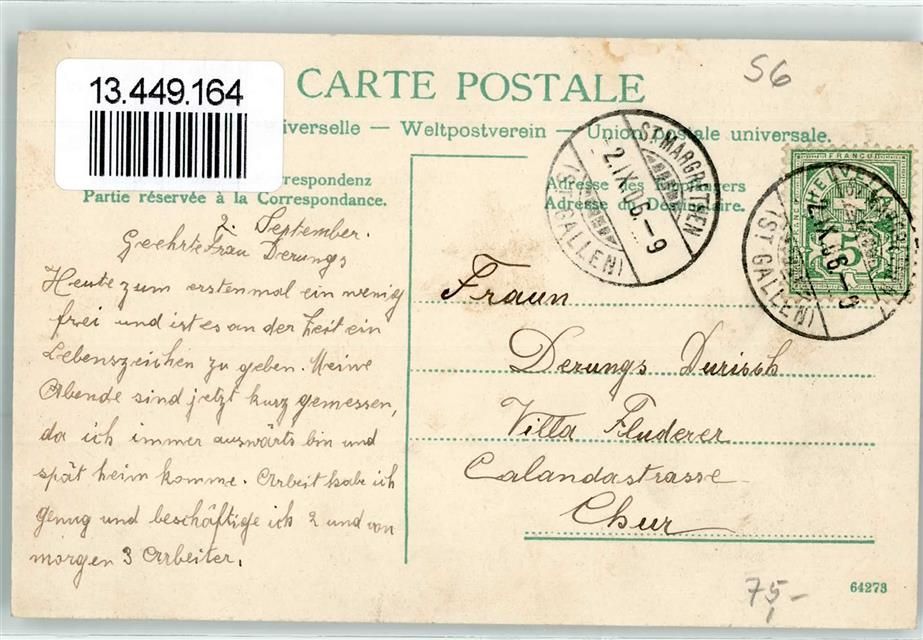 13.449.164
CARTE POSTALE
S6
iverselle — Weltpostverein — Union postale universale.
rrespondenz
Partie réservée à la Correspondance.
Adresse des Empfängers
Adresse du Destinataire.
ST. MARGRETHEN
2.IX.06.-9
(ST. GALLEN)
FRANCO
HELVETIA
5
(ST. GALLEN)
2. September.
Geehrte Frau Derungs
Heute zum erstenmal ein wenig
frei und ist es an der Zeit ein
Lebenszeichen zu geben. Meine
Abende sind jetzt kurz gemessen,
da ich immer auswärts bin und
spät heim komme. Arbeit habe ich
genug und beschäftige ich 2 und von
morgen 3 Arbeiter.
Fraun
Derungs Durisch
Villa Fluderer
Calandastrasse
Chur
75,-
64273